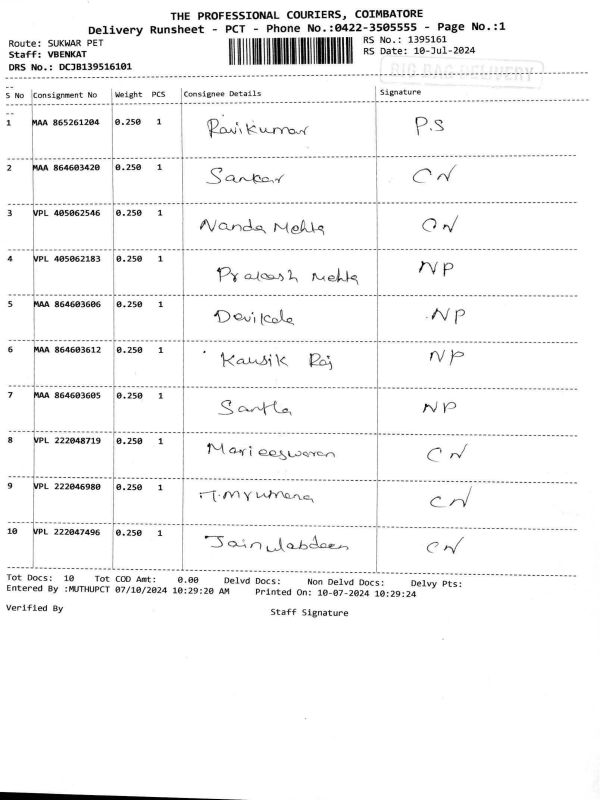 THE PROFESSIONAL COURIERS, COIMBATORE
Delivery Runsheet - PCT - Phone No.:0422-3505555 - Page No.:1
Route: SUKWAR PET RS No.: 1395161
Staff: VBENKAT RS Date: 10-Jul-2024
DRS No.: DCJB139516101
BIG BAG DELIVERY
S No Consignment No Weight PCS Consignee Details Signature
1 MAA 865261204 0.250 1 Ravikumar P.S
2 MAA 864603420 0.250 1 Sankar CN
3 VPL 405062546 0.250 1 Nanda Mehta CN
4 VPL 405062183 0.250 1 Prakash Mehta NP
5 MAA 864603606 0.250 1 Devikala NP
6 MAA 864603612 0.250 1 Kausik Raj NP
7 MAA 864603605 0.250 1 NP
8 VPL 222048719 0.250 1 Marieeswaran CN
9 VPL 222046980 0.250 1 CN
10 VPL 222047496 0.250 1 Jainulabdeen CN
Tot Docs: 10 Tot COD Amt: 0.00 Delvd Docs: Non Delvd Docs: Delvy Pts:
Entered By :MUTHUPCT 07/10/2024 10:29:20 AM Printed On: 10-07-2024 10:29:24
Verified By Staff Signature